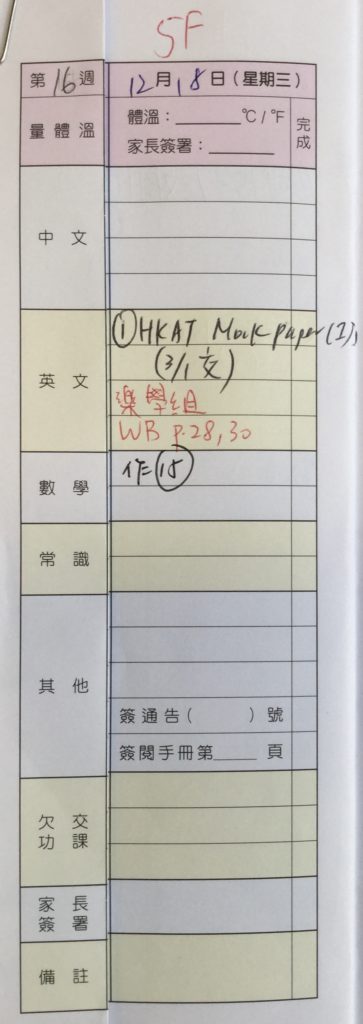 5F
第16週 12月18日(星期三)
量體溫 體溫:______°C/°F 完成
家長簽署:______
中文
英文 ① HKAT Mock paper (I),
(3/1 交)
樂學組
WB p.28,30
數學 作=⑮
常識
其他
簽通告( )號
簽閱手冊第____頁
欠交功課
家長簽署
備註